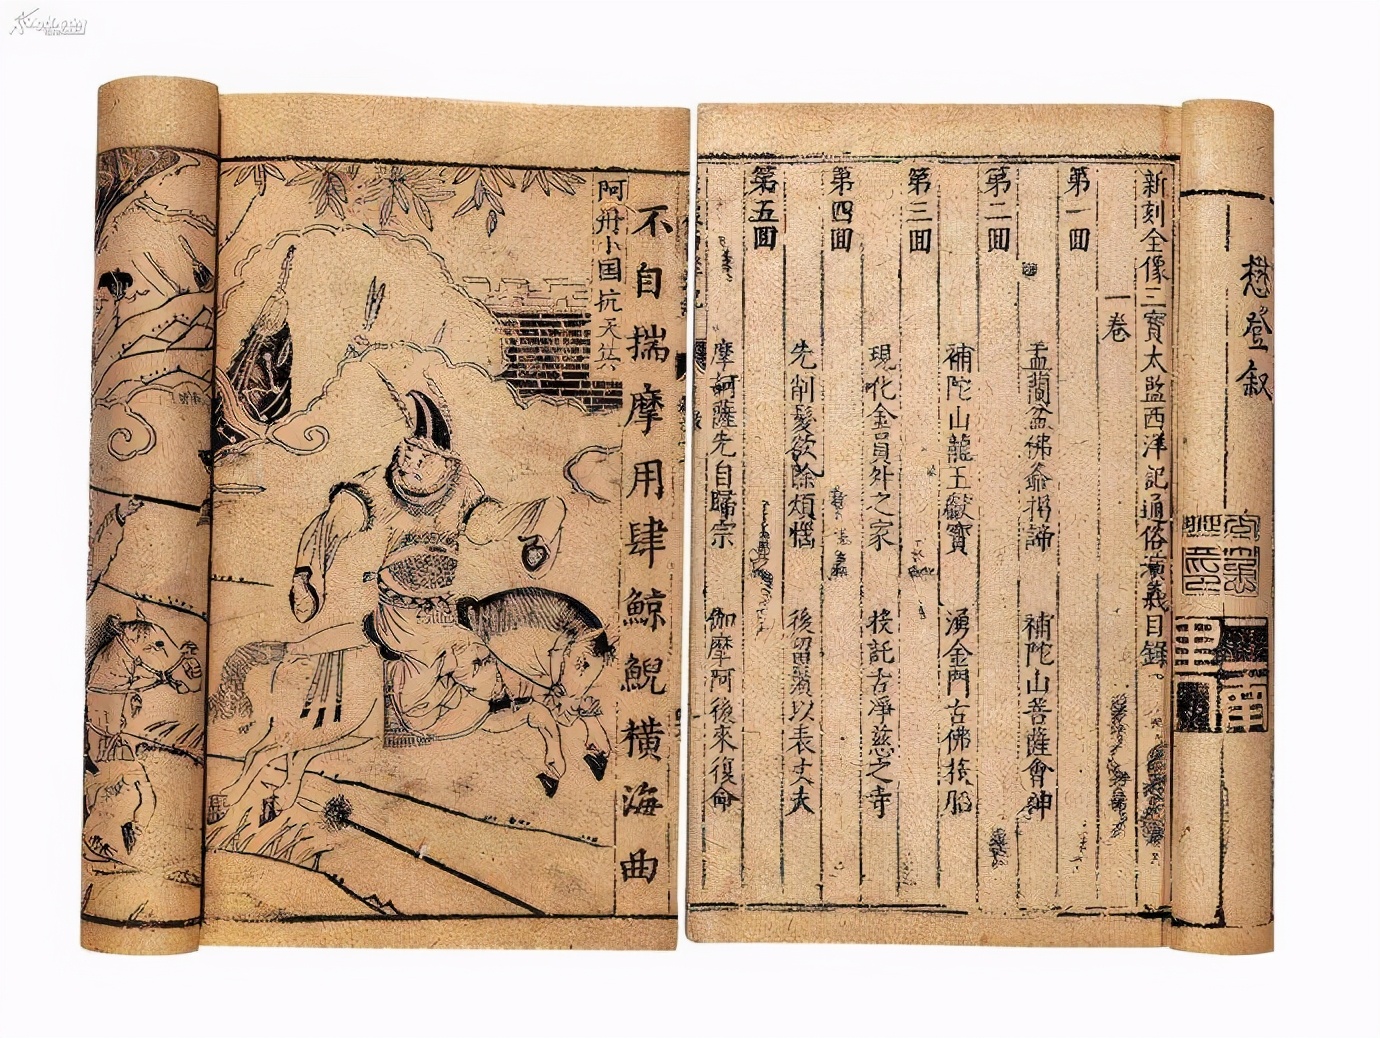 懋登叙
新刻全像三寳太监西洋記通俗演義目録。
一卷
第一囬
盂蘭盆佛爺揭諦 補陀山菩薩會神
第二囬
補陀山龍王獻寳 湧金門古佛投胎
第三囬
現化金員外之家 投託古凈慈之寺
第四囬
先削髮欲除煩惱 後留鬚以表丈夫
第五囬
摩訶薩先自歸宗 伽摩阿後來復命
不自揣摩用肆鯨鯢横海曲
阿丹小国抗天兵